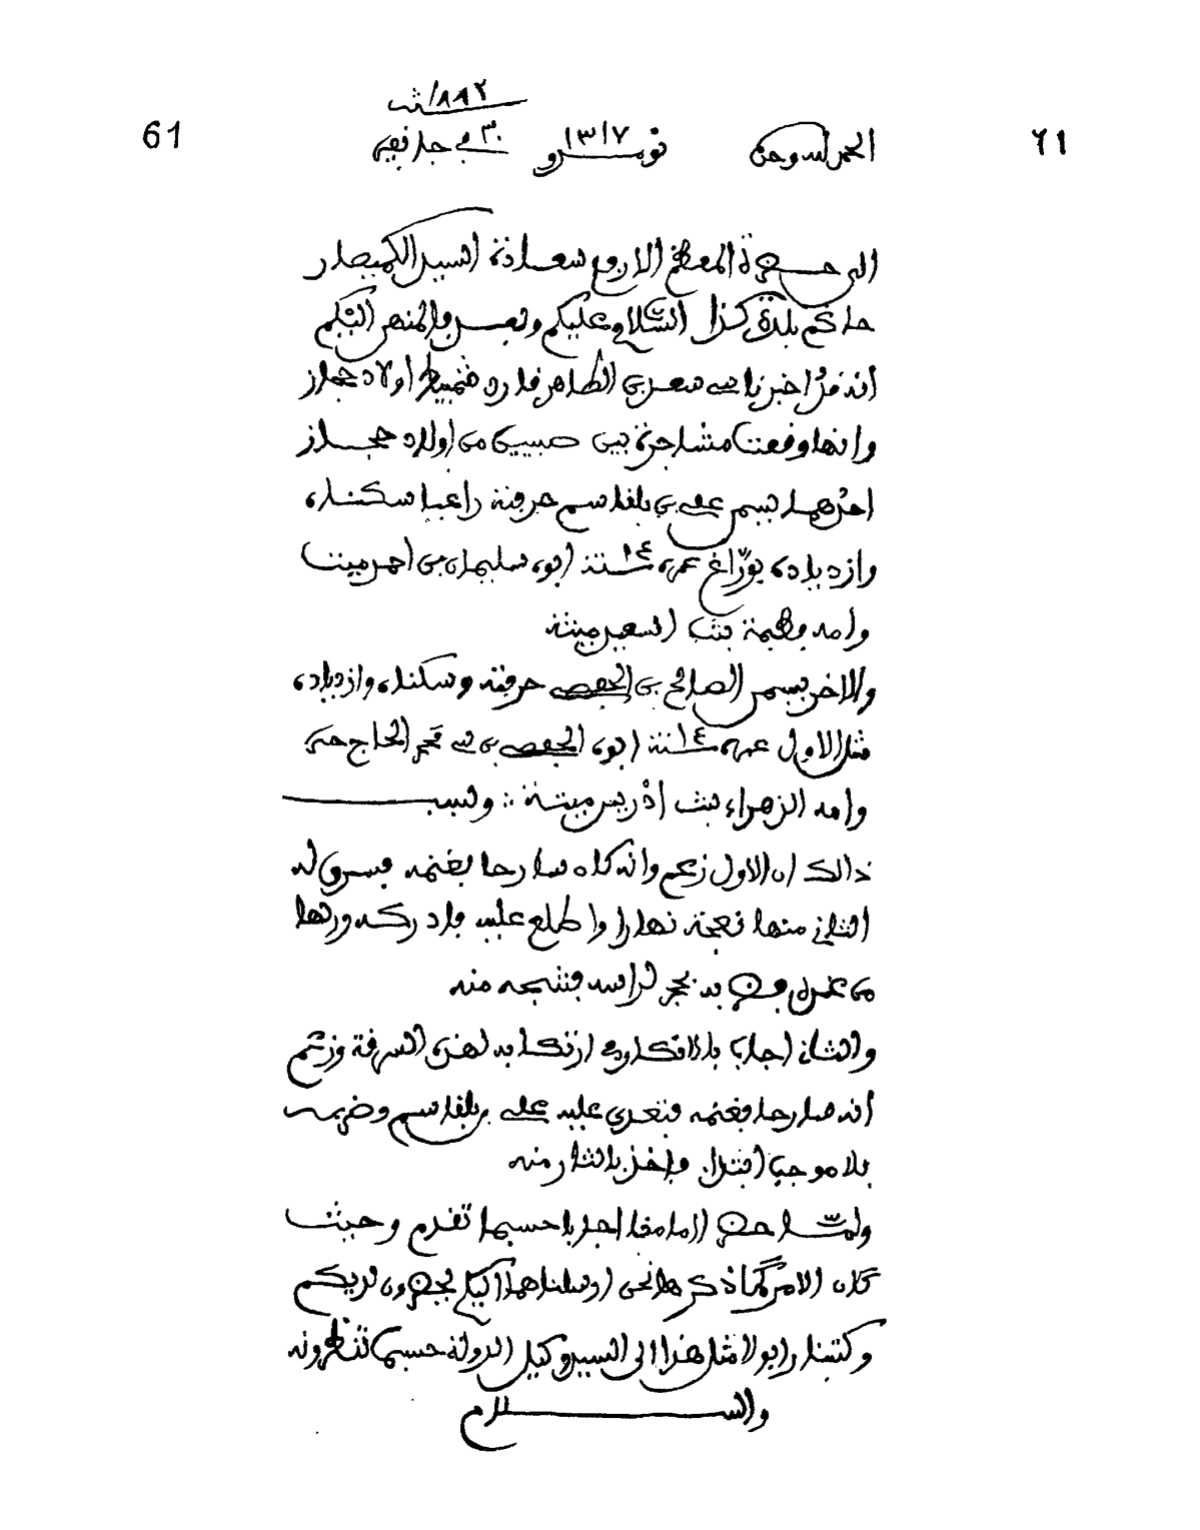 61
٦١
الحمد لله وحده نومرو ١٣١٧ ٣٠ في جانفي سنة ١٨٩٢
الى حضرة المعظم الارفع سعادة السيد الكميصار
حاكم بلدة كذا السلام عليكم وبعد فالمنهى اليكم
انه قد اخبرنا سي سعد بن الطاهر قايد اولاد حجاز
وانها وقعت مشاجرة بين صبيين من اولاد حجاز
احدهما يسمى علي بن بلقاسم حرفته راعيا سكناه
وازدياده بوزاغ عمره ١٤ سنة ابوه سليمان بن احمد ميت
وامه فطيمة بنت السعيد ميتة
والاخر يسمى الصالح بن الحفصي حرفته وسكناه وازدياده
مثل الاول عمره ١٤ سنة ابوه الحفصي بن سي محمد الحاج حي
وامه الزهراء بنت ادريس ميتة ؞ وسبب
ذالك ان الاول زعم وانه كان سارحا بغنمه فسرق له
الثاني منها نعجة نهارا واطلع عليه فادركه وردها
من عنده فضربه بحجر لراسه فشجه منه
والثاني اجاب بالانكار في ارتكابه لهذه السرقة وزعم
انه سارحا بغنمه فتعدى عليه علي بن بلقاسم وضربه
بلا موجب ابتداء واخذ بالثار منه
ولما حضرا امامنا اجابا حسبما تقدم وحيث
كان الامر كما ذكر ها نحن ارسلناهما اليكم يحضرون لديكم
وكتبنا رابورا مثل هذا الى السيد وكيل الدولة حسبما تنظرونه
والسلام